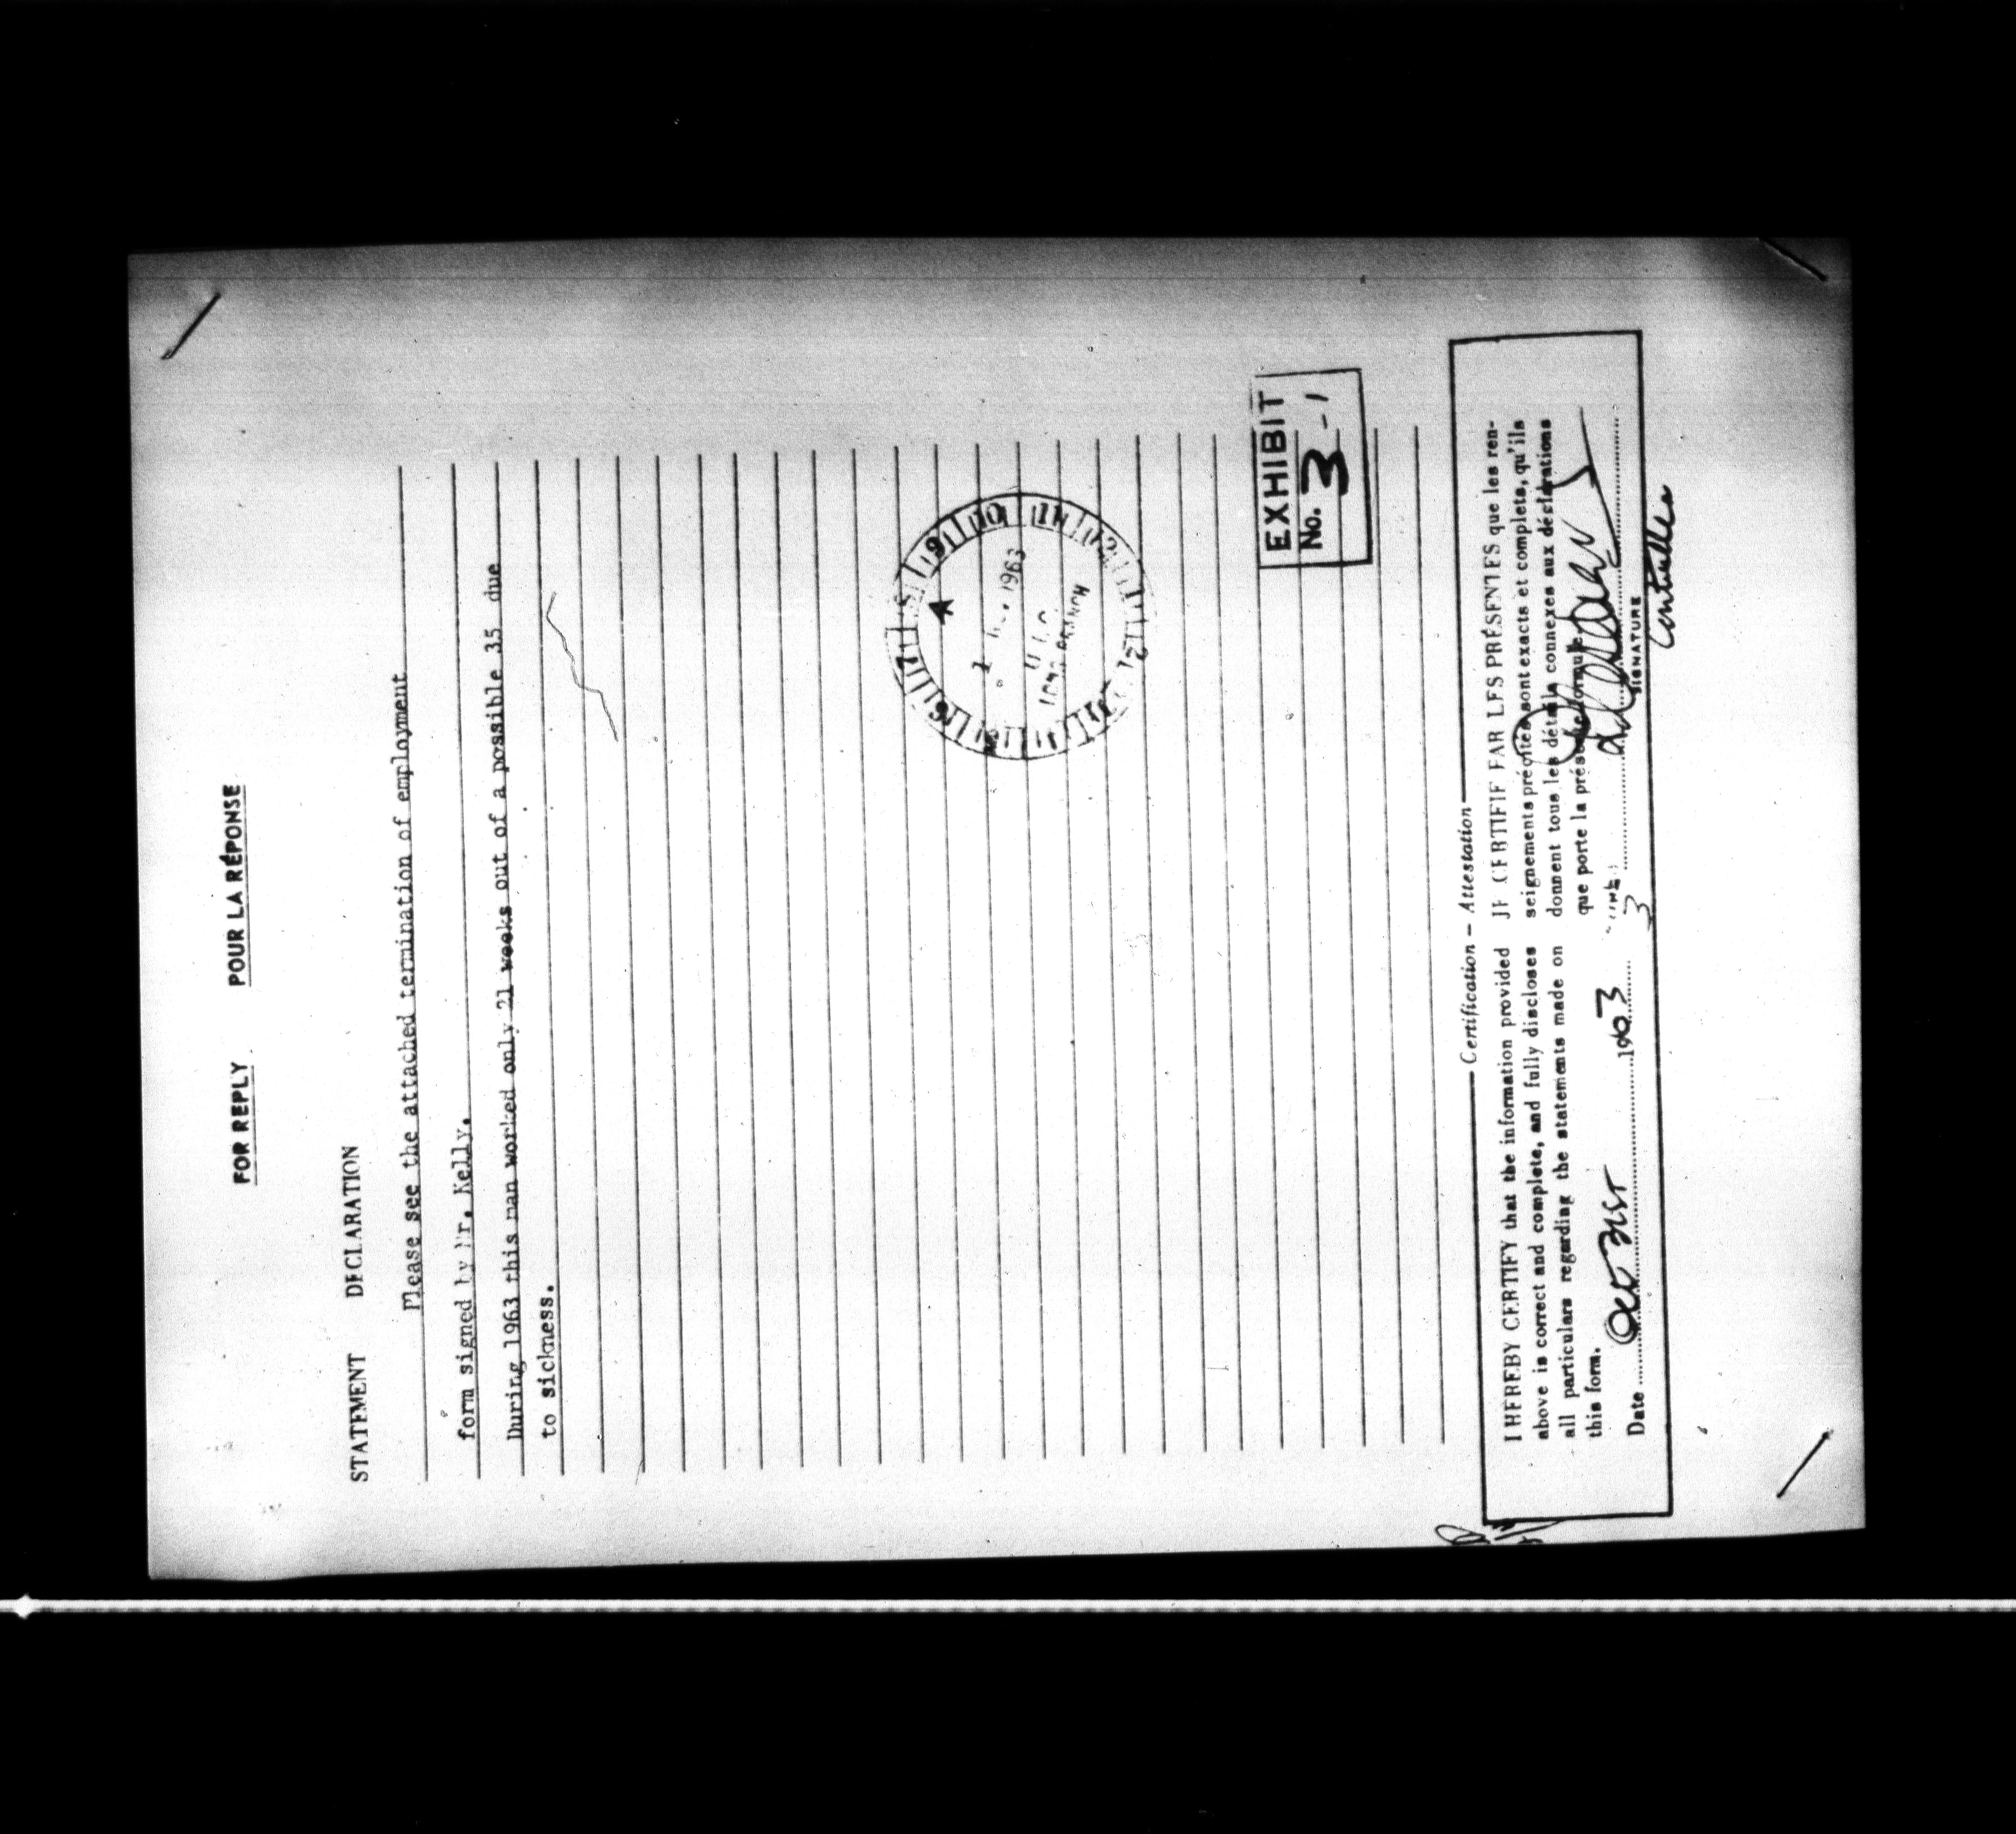 FOR REPLY POUR LA RÉPONSE
STATEMENT DECLARATION
Please see the attached termination of employment
form signed by Mr. Kelly.
During 1963 this man worked only 21 weeks out of a possible 35 due
to sickness.
1963
BRANCH
EXHIBIT
No. 3-1
Certification – Attestation
I HEREBY CERTIFY that the information provided
above is correct and complete, and fully discloses
all particulars regarding the statements made on
this form.
Date Oct 31st 1963
JE CERTIFIE PAR LES PRÉSENTES que les ren-
seignements précités sont exacts et complets, qu'ils
donnent tous les détails connexes aux déclarations
que porte la présente formule.
SIGNATURE